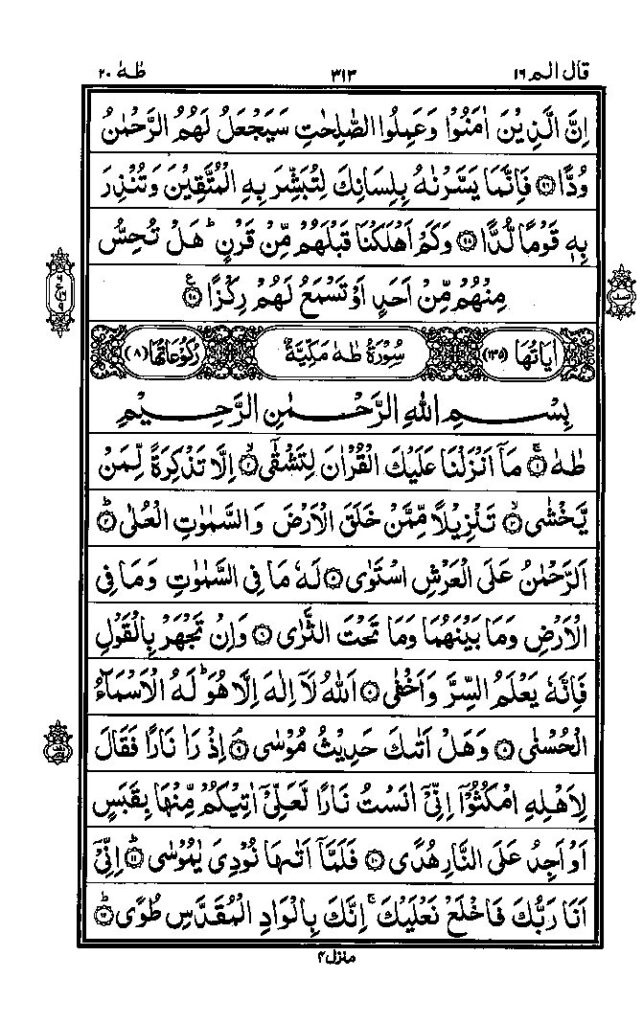 قال الم ١٦ ٣١٣ طٰهٰ ٢٠
اِنَّ الَّذِيْنَ اٰمَنُوْا وَعَمِلُوا الصّٰلِحٰتِ سَيَجْعَلُ لَهُمُ الرَّحْمٰنُ
وُدًّا ﴿٩٦﴾ فَاِنَّمَا يَسَّرْنٰهُ بِلِسَانِكَ لِتُبَشِّرَ بِهِ الْمُتَّقِيْنَ وَتُنْذِرَ
بِهٖ قَوْمًا لُّدًّا ﴿٩٧﴾ وَكَمْ اَهْلَكْنَا قَبْلَهُمْ مِّنْ قَرْنٍ ؕ هَلْ تُحِسُّ
مِنْهُمْ مِّنْ اَحَدٍ اَوْ تَسْمَعُ لَهُمْ رِكْزًا ﴿٩٨﴾ ع
اٰيَاتُهَا (١٣٥) سُوْرَةُ طٰهٰ مَكِّيَّةٌ رُكُوْعَاتُهَا (٨)
بِسْمِ اللهِ الرَّحْمٰنِ الرَّحِيْمِ
طٰهٰ ﴿١﴾ مَاۤ اَنْزَلْنَا عَلَيْكَ الْقُرْاٰنَ لِتَشْقٰۤى ﴿٢﴾ اِلَّا تَذْكِرَةً لِّمَنْ
يَّخْشٰى ﴿٣﴾ تَنْزِيْلًا مِّمَّنْ خَلَقَ الْاَرْضَ وَالسَّمٰوٰتِ الْعُلٰى ﴿٤﴾ ؕ
اَلرَّحْمٰنُ عَلَى الْعَرْشِ اسْتَوٰى ﴿٥﴾ لَهٗ مَا فِى السَّمٰوٰتِ وَمَا فِى
الْاَرْضِ وَمَا بَيْنَهُمَا وَمَا تَحْتَ الثَّرٰى ﴿٦﴾ وَاِنْ تَجْهَرْ بِالْقَوْلِ
فَاِنَّهٗ يَعْلَمُ السِّرَّ وَاَخْفٰى ﴿٧﴾ اَللهُ لَاۤ اِلٰهَ اِلَّا هُوَ ؕ لَهُ الْاَسْمَآءُ
الْحُسْنٰى ﴿٨﴾ وَهَلْ اَتٰىكَ حَدِيْثُ مُوْسٰى ﴿٩﴾ اِذْ رَاٰ نَارًا فَقَالَ
لِاَهْلِهِ امْكُثُوْۤا اِنِّىْۤ اٰنَسْتُ نَارًا لَّعَلِّىْۤ اٰتِيْكُمْ مِّنْهَا بِقَبَسٍ
اَوْ اَجِدُ عَلَى النَّارِ هُدًى ﴿١٠﴾ فَلَمَّاۤ اَتٰىهَا نُوْدِىَ يٰمُوْسٰى ﴿١١﴾ ؕ اِنِّىْۤ
اَنَا رَبُّكَ فَاخْلَعْ نَعْلَيْكَ ۚ اِنَّكَ بِالْوَادِ الْمُقَدَّسِ طُوًى ﴿١٢﴾ ؕ
منزل ٤